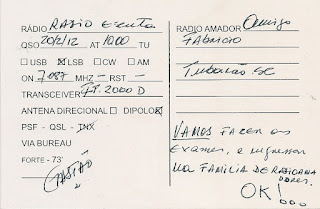 RÁDIO Radio Escuta
QSO 20/2/12 AT 1000 TU
USB LSB CW AM
ON 7087 MHZ - RST -
TRANSCEIVER FT. 2000 D
ANTENA DIRECIONAL DIPOLO
PSF - QSL - TNX
VIA BUREAU
FORTE - 73'
RADIO AMADOR Amigo
FABRICIO
TUBARÃO SC
VAMOS FAZER OS
EXAMES, E INGRESSAR
NA FAMILIA DE RADIOAMA
DORES.
OK!...